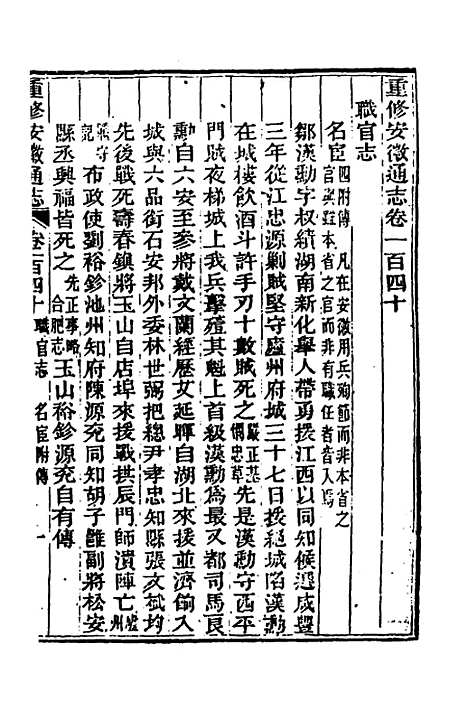 重修安徽通志卷一百四十
職官志
名宦四附傳 凡在安徽用兵殉節而非本省之官與雖本省之官而非有職任者皆入焉
鄒漢勳字叔績湖南新化舉人帶勇援江西以同知候選咸豐
三年從江忠源剿賊堅守廬州府城三十七日援絕城陷漢勳
在城樓飲酒斗許手刃十數賊死之 先是漢勳守西平
門賊夜梯城上我兵擊殪其魁上首級漢勳爲最又都司馬良
勳自六安至參將戴文蘭經歷艾延輝自湖北來援並濟偷入
城與六品銜石安邦外委林世弼把總尹孝忠知縣張文斌均
先後戰死壽春鎮將玉山自店埠來援戰拱辰門師潰陣亡
布政使劉裕鉁池州知府陳源兗同知胡子雝副將松安
縣丞興福皆死之先正事略合肥志玉山裕鉁源兗自有傳
重修安徽通志 卷一百四十 職官志 名宦附傳 一